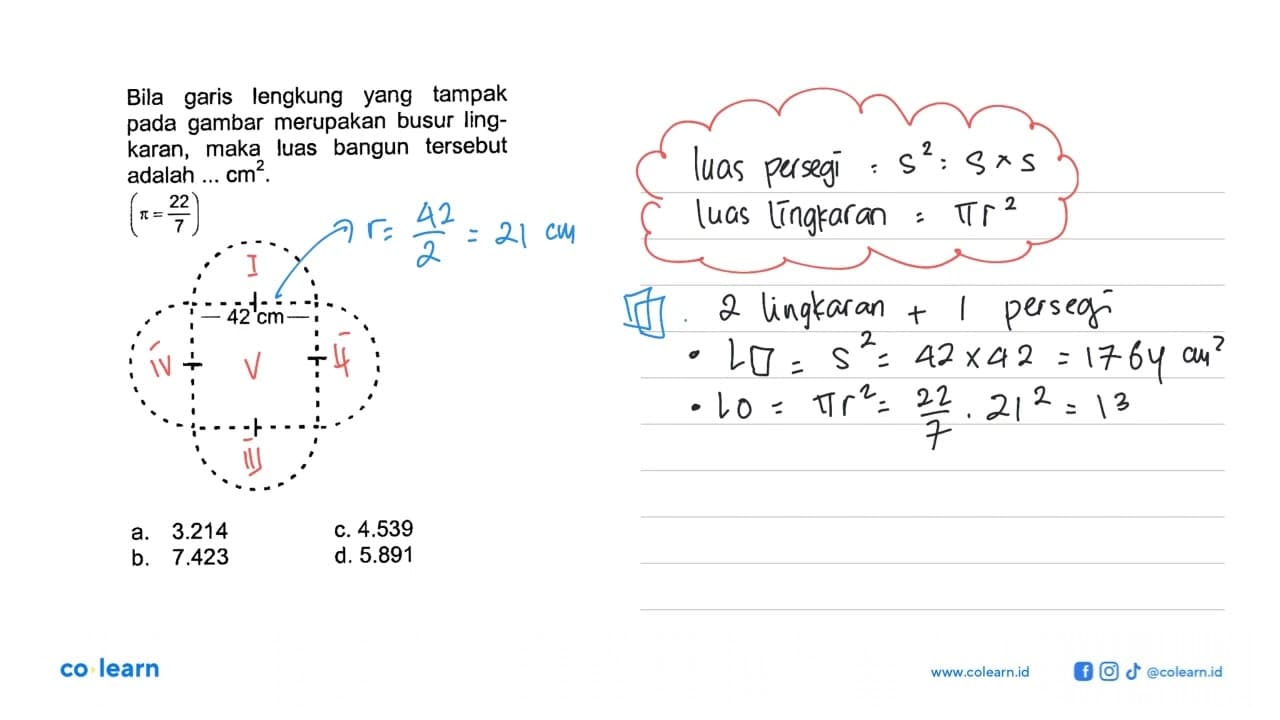 Bila garis lengkung yang tampak
pada gambar merupakan busur ling-
karan, maka luas bangun tersebut
adalah ... cm².
(π = 22/7)
r = 42/2 = 21 cm
I
42 cm
IV V II
III
a. 3.214 c. 4.539
b. 7.423 d. 5.891
luas persegi = s² = s × s
luas lingkaran = πr²
2 lingkaran + 1 persegi
• L□ = s² = 42 × 42 = 1764 cm²
• LO = πr² = 22/7 . 21² = 13
co learn
www.colearn.id
@colearn.id